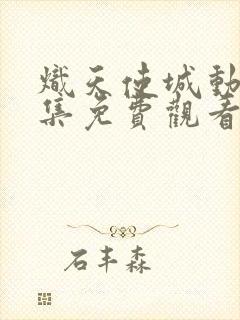 熾天使城動
集免費觀看
石丰森